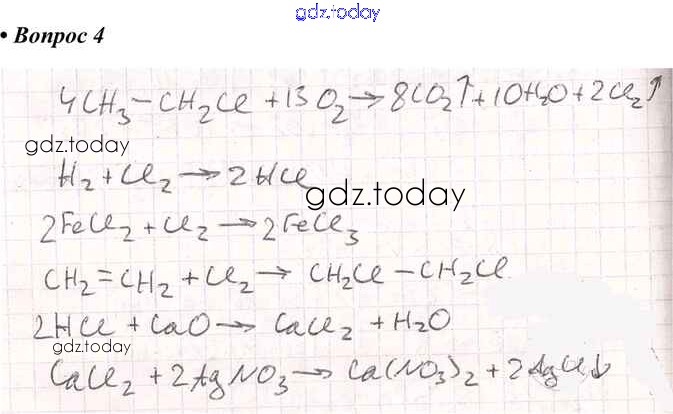 gdz.today
• Вопрос 4
4CH₃–CH₂Cl + 13O₂ → 8CO₂↑ + 10H₂O + 2Cl₂↑
gdz.today
H₂ + Cl₂ → 2HCl
gdz.today
2FeCl₂ + Cl₂ → 2FeCl₃
CH₂=CH₂ + Cl₂ → CH₂Cl–CH₂Cl
2HCl + CaO → CaCl₂ + H₂O
gdz.today
CaCl₂ + 2AgNO₃ → Ca(NO₃)₂ + 2AgCl↓